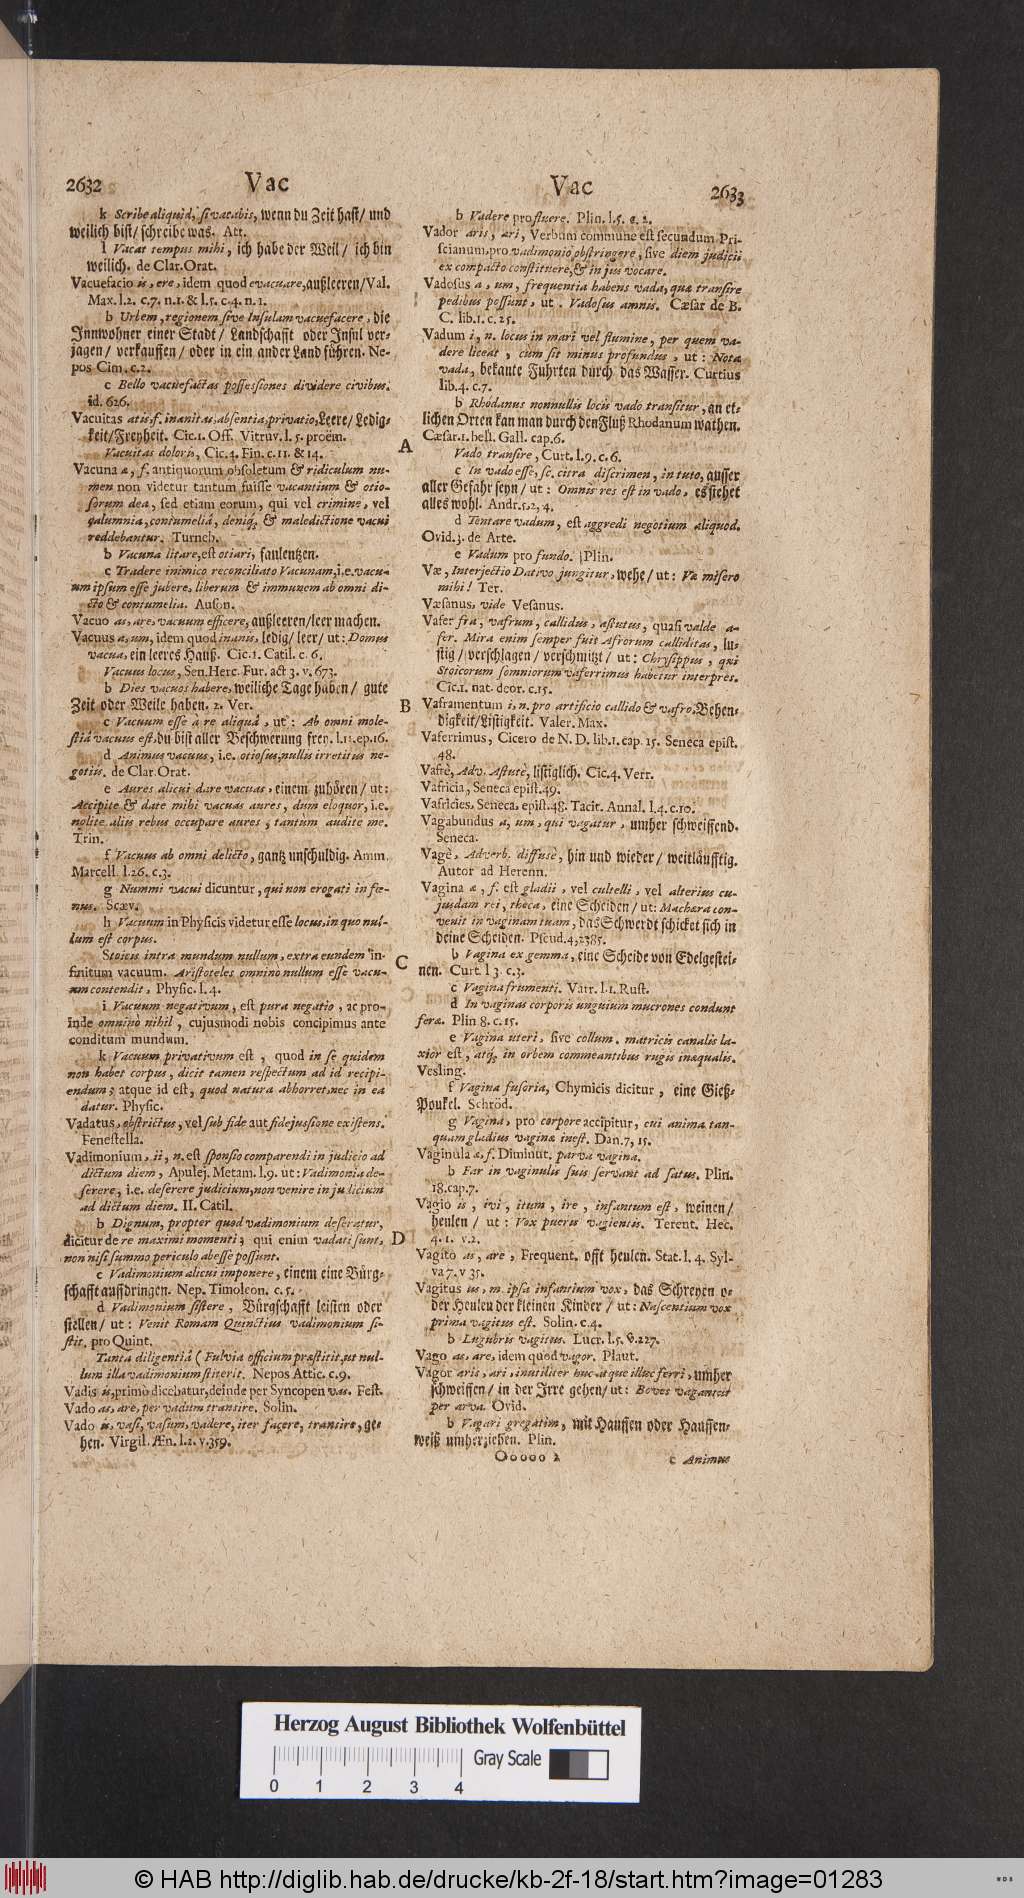 2632 Vac
k Scribe aliquid, si vacabis, wenn du Zeit hast/ und
weilich bist/ schreibe was. Att.
l Vacat tempus mihi, ich habe der Weil/ ich bin
weilich. de Clar. Orat.
Vacuefacio is, ere, idem quod evacuare, außleeren/ Val.
Max. l.2. c.7. n.1. & l.5. c.4. n.1.
b Urbem, regionem sive Insulam vacuefacere, die
Innwohner einer Stadt/ Landschafft oder Insul ver-
jagen/ verkauffen/ oder in ein ander Land führen. Ne-
pos Cim. c.2.
c Bello vacuefactas possessiones dividere civibus.
id. 626.
Vacuitas atis, f. inanitas, absentia, privatio, Leere/ Ledig-
keit/ Freyheit. Cic. 1. Off. Vitruv. l.5. proëm.
Vacuitas doloris, Cic. 4. Fin. c.11. & 14.
Vacuna æ, f. antiquorum obsoletum & ridiculum nu-
men non videtur tantum fuisse vacantium & otio-
sorum dea, sed etiam eorum, qui vel crimine, vel
calumnia, contumeliâ, deniq; & maledictione vacui
reddebantur. Turneb.
b Vacuna litare, est otiari, faulentzen.
c Tradere inimico reconciliato Vacunam, i.e. vacu-
um ipsum esse jubere, liberum & immunem ab omni di-
cto & contumelia. Auson.
Vacuo as, are, vacuum efficere, außleeren/ leer machen.
Vacuus a, um, idem quod inanis, ledig/ leer/ ut: Domus
vacua, ein leeres Hauß. Cic. 1. Catil. c. 6.
Vacuus locus, Sen. Herc. Fur. act 3. v. 673.
b Dies vacuos habere, weiliche Tage haben/ gute
Zeit oder Weile haben. 2. Ver.
c Vacuum esse à re aliquâ, ut: Ab omni mole-
stiâ vacuus est, du bist aller Beschwerung frey. l.11. ep. 16.
d Animus vacuus, i.e. otiosus, nullis irretitus ne-
gotiis. de Clar. Orat.
e Aures alicui dare vacuas, einem zuhören/ ut:
Accipite & date mihi vacuas aures, dum eloquor, i.e.
nolite aliis rebus occupare aures, tantùm audite me.
Trin.
f Vacuus ab omni delicto, gantz unschuldig. Amm.
Marcell. l.26. c.3.
g Nummi vacui dicuntur, qui non erogati in fœ-
nus. Scæv.
h Vacuum in Physicis videtur esse locus, in quo nul-
lum est corpus.
Stoicis intra mundum nullum, extra eundem in-
finitum vacuum. Aristoteles omnino nullum esse vacu-
um contendit, Physic. l.4.
i Vacuum negativum, est pura negatio, ac pro-
inde omninò nihil, cujusmodi nobis concipimus ante
conditum mundum.
k Vacuum privativum est, quod in se quidem
non habet corpus, dicit tamen respectum ad id recipi-
endum; atque id est, quod natura abhorret, nec in ea
datur. Physic.
Vadatus, obstrictus, vel sub fide aut fidejussione existens.
Fenestella.
Vadimonium, ii, n. est sponsio comparendi in judicio ad
dictum diem, Apulej. Metam. l.9. ut: Vadimonia de-
serere, i.e. deserere judicium, non venire in judicium
ad dictum diem. II. Catil.
b Dignum, propter quod vadimonium deseratur,
dicitur de re maximi momenti; qui enim vadati sunt,
non nisi summo periculo abesse possunt.
c Vadimonium alicui imponere, einem eine Bürg-
schafft auffdringen. Nep. Timoleon. c. 5.
d Vadimonium sistere, Bürgschafft leisten oder
stellen/ ut: Venit Romam Quinctius vadimonium si-
stit. pro Quint.
Tanta diligentiâ (Fulvia officium præstitit, ut nul-
lum illa vadimonium stiterit. Nepos Attic. c.9.
Vadis is, primò dicebatur, deinde per Syncopen vas. Fest.
Vado as, are, per vadum transire. Solin.
Vado is, vasi, vasum, vadere, iter facere, transire, ge-
hen. Virgil. Æn. l.2. v.359.
A
B
C
D
Vac 2633
b Vadere pro fluere. Plin. l.5. c.2.
Vador aris, ari, Verbum commune est secundum Pri-
scianum, pro vadimonio obstringere, sive diem judicii
ex compacto constituere, & in jus vocare.
Vadosus a, um, frequentia habens vada, quæ transire
pedibus possunt, ut. Vadosus amnis. Cæsar de B.
C. lib.1. c.25.
Vadum i, n. locus in mari vel flumine, per quem va-
dere liceat, cùm sit minus profundus, ut: Nota
vada, bekante Fuhrten durch das Wasser. Curtius
lib.4. c.7.
b Rhodanus nonnullis locis vado transitur, an et-
lichen Orten kan man durch den Fluß Rhodanum wathen.
Cæsar. 1. bell. Gall. cap.6.
Vado transire, Curt. l.9. c.6.
c In vado esse, sc. citra discrimen, in tuto, ausser
aller Gefahr seyn/ ut: Omnis res est in vado, es siehet
alles wohl. Andr. 5, 2, 4.
d Tentare vadum, est aggredi negotium aliquod.
Ovid. 3. de Arte.
e Vadum pro fundo. Plin.
Væ, Interjectio Dativo jungitur, wehe/ ut: Væ misero
mihi! Ter.
Væsanus, vide Vesanus.
Vafer fra, vafrum, callidus, astutus, quasi valde a-
fer. Mira enim semper fuit Afrorum calliditas, lu-
stig/ verschlagen/ verschmitzt/ ut: Chrysippus, qui
Stoicorum somniorum vaferrimus habetur interpres.
Cic. 1. nat. deor. c. 15.
Vaframentum i, n. pro artificio callido & vafro, Behen-
digkeit/ Listigkeit. Valer. Max.
Vaferrimus, Cicero de N. D. lib. 1. cap. 15. Seneca epist.
48.
Vafrè, Adv. Astutè, listiglich. Cic. 4. Verr.
Vafricia, Seneca epist. 49.
Vafricies, Seneca. epist. 48. Tacit. Annal. l.4. c.10.
Vagabundus a, um, qui vagatur, umher schweiffend.
Seneca.
Vagè, Adverb. diffusè, hin und wieder/ weitläufftig.
Autor ad Herenn.
Vagina æ, f. est gladii, vel cultelli, vel alterius cu-
jusdam rei, theca, eine Scheiden/ ut: Machæra con-
venit in vaginam tuam, das Schwerdt schicket sich in
deine Scheiden. Pseud. 4, 2385.
b Vagina ex gemma, eine Scheide von Edelgestei-
nen. Curt. l 3. c.3.
c Vagina frumenti. Varr. l.1. Rust.
d In vaginas corporis unguium mucrones condunt
feræ. Plin 8. c.15.
e Vagina uteri, sive collum. matricis canalis la-
xior est, atq; in orbem commeantibus rugis inæqualis.
Vesling.
f Vagina fusoria, Chymicis dicitur, eine Gieß-
Pouckel. Schröd.
g Vagina, pro corpore accipitur, cui anima tan-
quam gladius vaginæ inest. Dan. 7, 15.
Vaginula æ, f. Diminut. parva vagina.
b Far in vaginulis suis servant ad satus. Plin.
18. cap.7.
Vagio is, ivi, itum, ire, infantum est, weinen/
heulen/ ut: Vox pueris vagientis. Terent. Hec.
4. 1. v.2.
Vagito as, are, Frequent. offt heulen. Stat. l. 4. Syl-
va 7. v 35.
Vagitus us, m. ipsa infantium vox, das Schreyen o-
der Heulen der kleinen Kinder/ ut: Nascentium vox
prima vagitus est. Solin. c.4.
b Lugubris vagitus. Lucr. l.5. v.227.
Vago as, are, idem quod vagor. Plaut.
Vagor aris, ari, inutiliter huc atque illuc ferri, umher
schweiffen/ in der Irre gehen/ ut: Boves vagantur
per arva. Ovid.
b Vagari gregatim, mit Hauffen oder Hauffen-
weiß umherziehen. Plin.
Ooooo 2 c Animus
Herzog August Bibliothek Wolfenbüttel
Gray Scale
0 1 2 3 4
© HAB http://diglib.hab.de/drucke/kb-2f-18/start.htm?image=01283